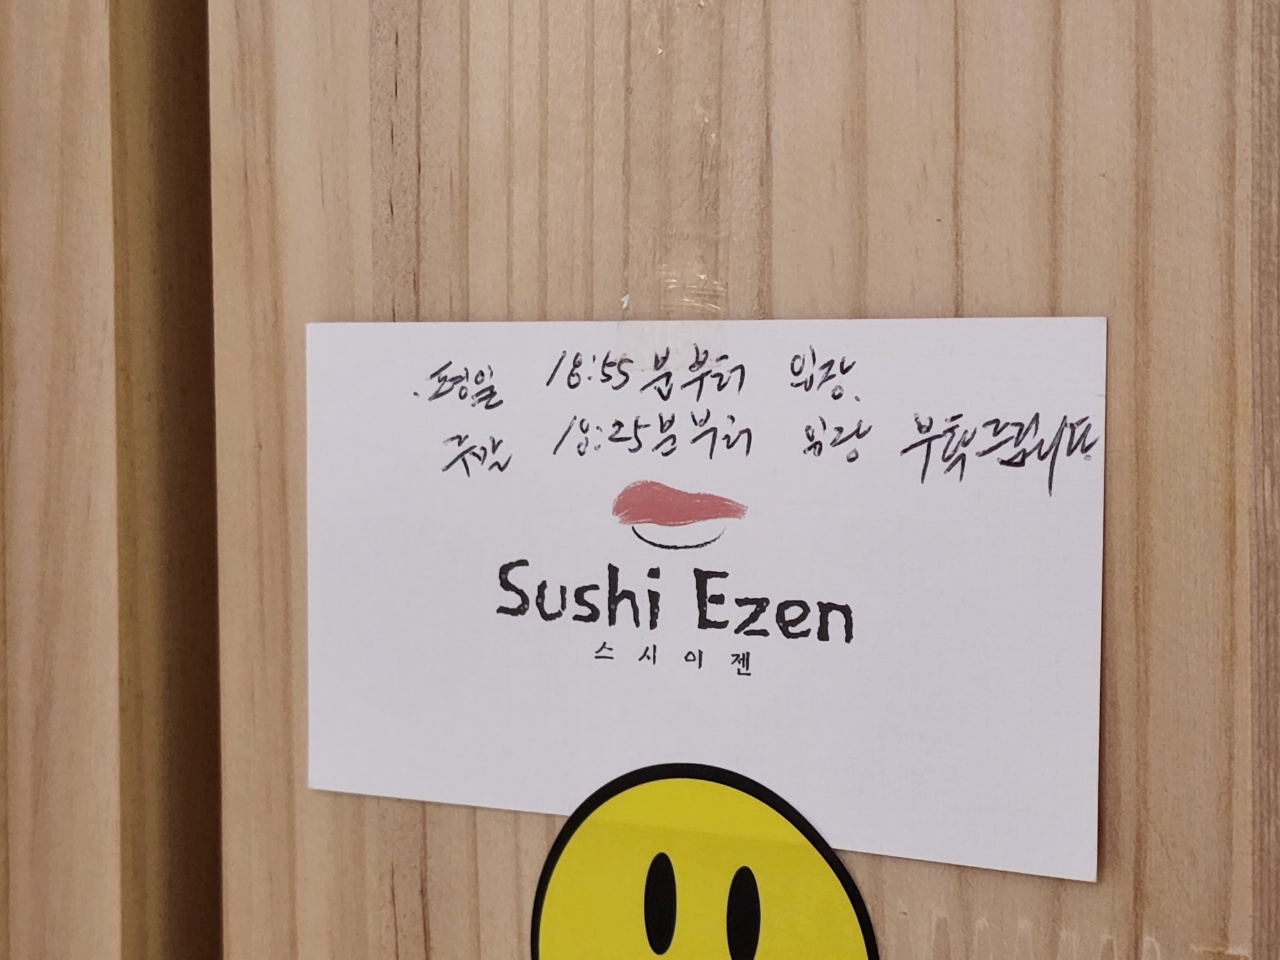 . 평일 18:55분부터 입장.
주말 18:25분부터 입장 부탁드립니다.
Sushi Ezen
스시이젠